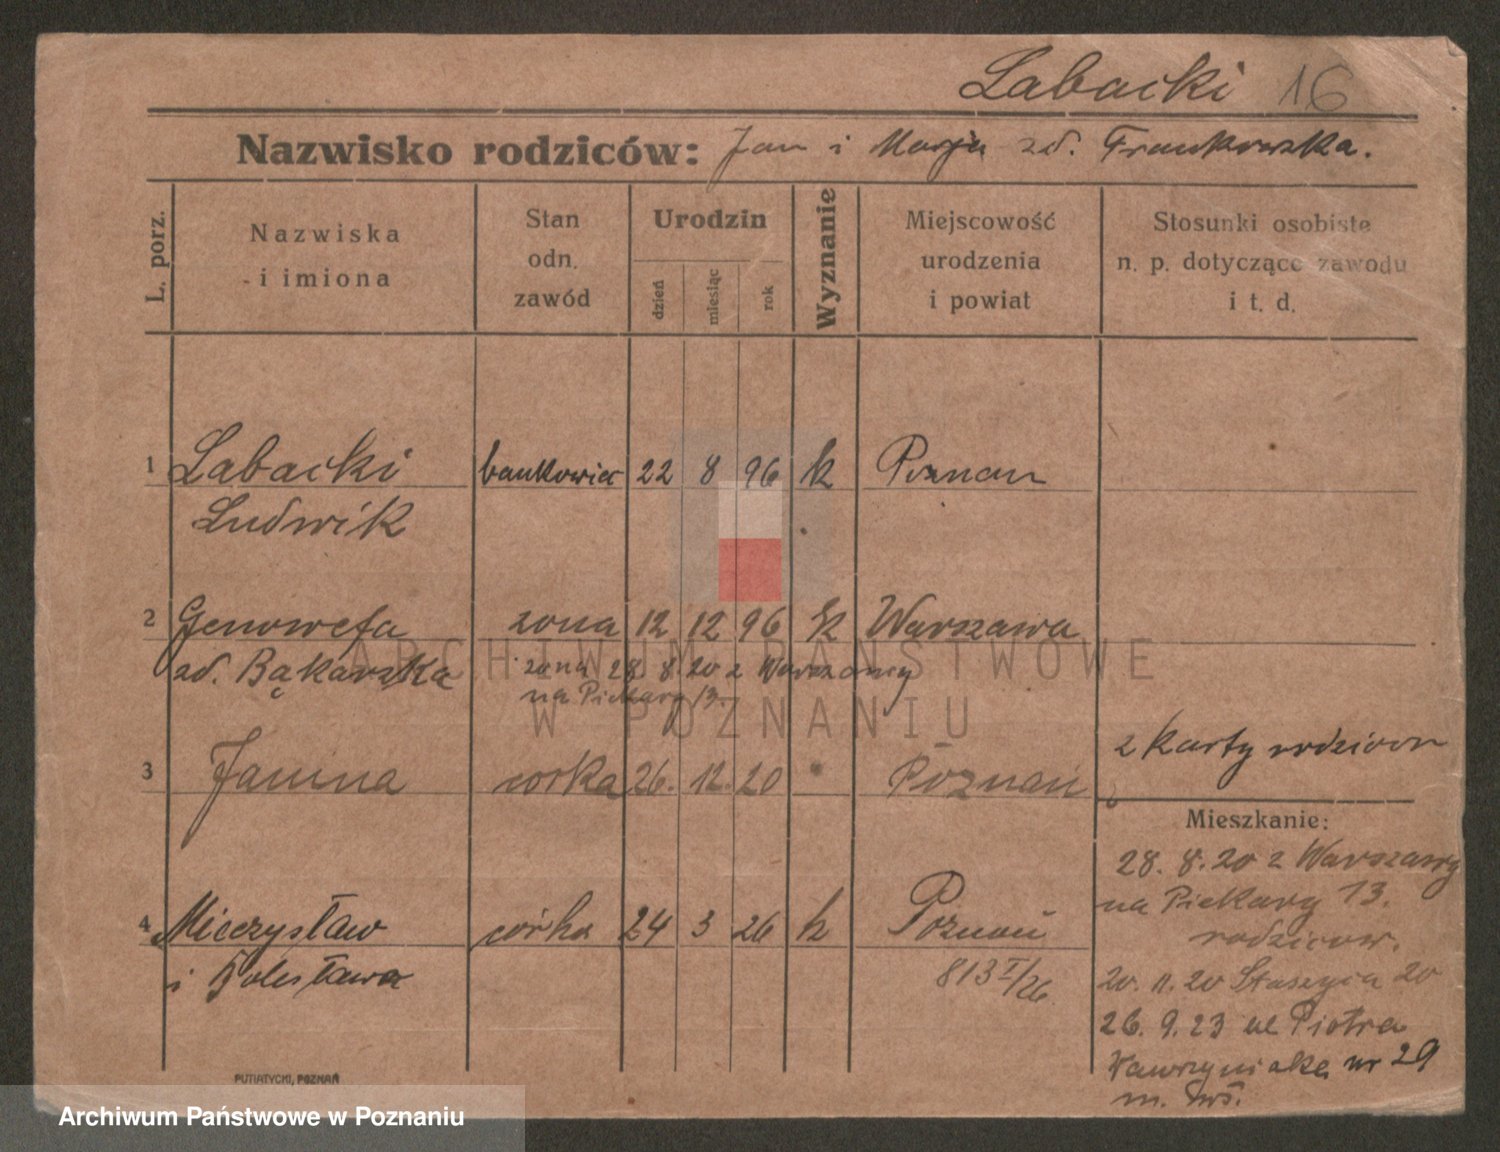 Labacki 16
Nazwisko rodziców: Jan i Marja zd. Frankowska.
L. porz.
Nazwiska
i imiona
Stan
odn.
zawód
Urodzin
dzień
miesiąc
rok
Wyznanie
Miejscowość
urodzenia
i powiat
Stosunki osobiste
n. p. dotyczące zawodu
i t. d.
1 Labacki bankowiec 22 8 96 k Poznan
Ludwik
2 Genowefa zona 12 12 96 k Warszawa
zd. Bąkowska zona 28. 8. 20 z Warszawy
na Piekary 13.
3 Janina corka 26. 12. 20 Poznań
z karty rodzicow
Mieszkanie:
28. 8. 20 z Warszawy
na Piekary 13.
rodzicow.
4 Mieczysław córka 24 3 26 k Poznań
i Bolesława
813 I/26
20. 11. 20 Staszyca 20
26. 9. 23 ul Piotra
Wawrzyniaka nr 29
m.
ARCHIWUM PAŃSTWOWE
W POZNANIU
PUTIATYCKI, POZNAŃ
Archiwum Państwowe w Poznaniu